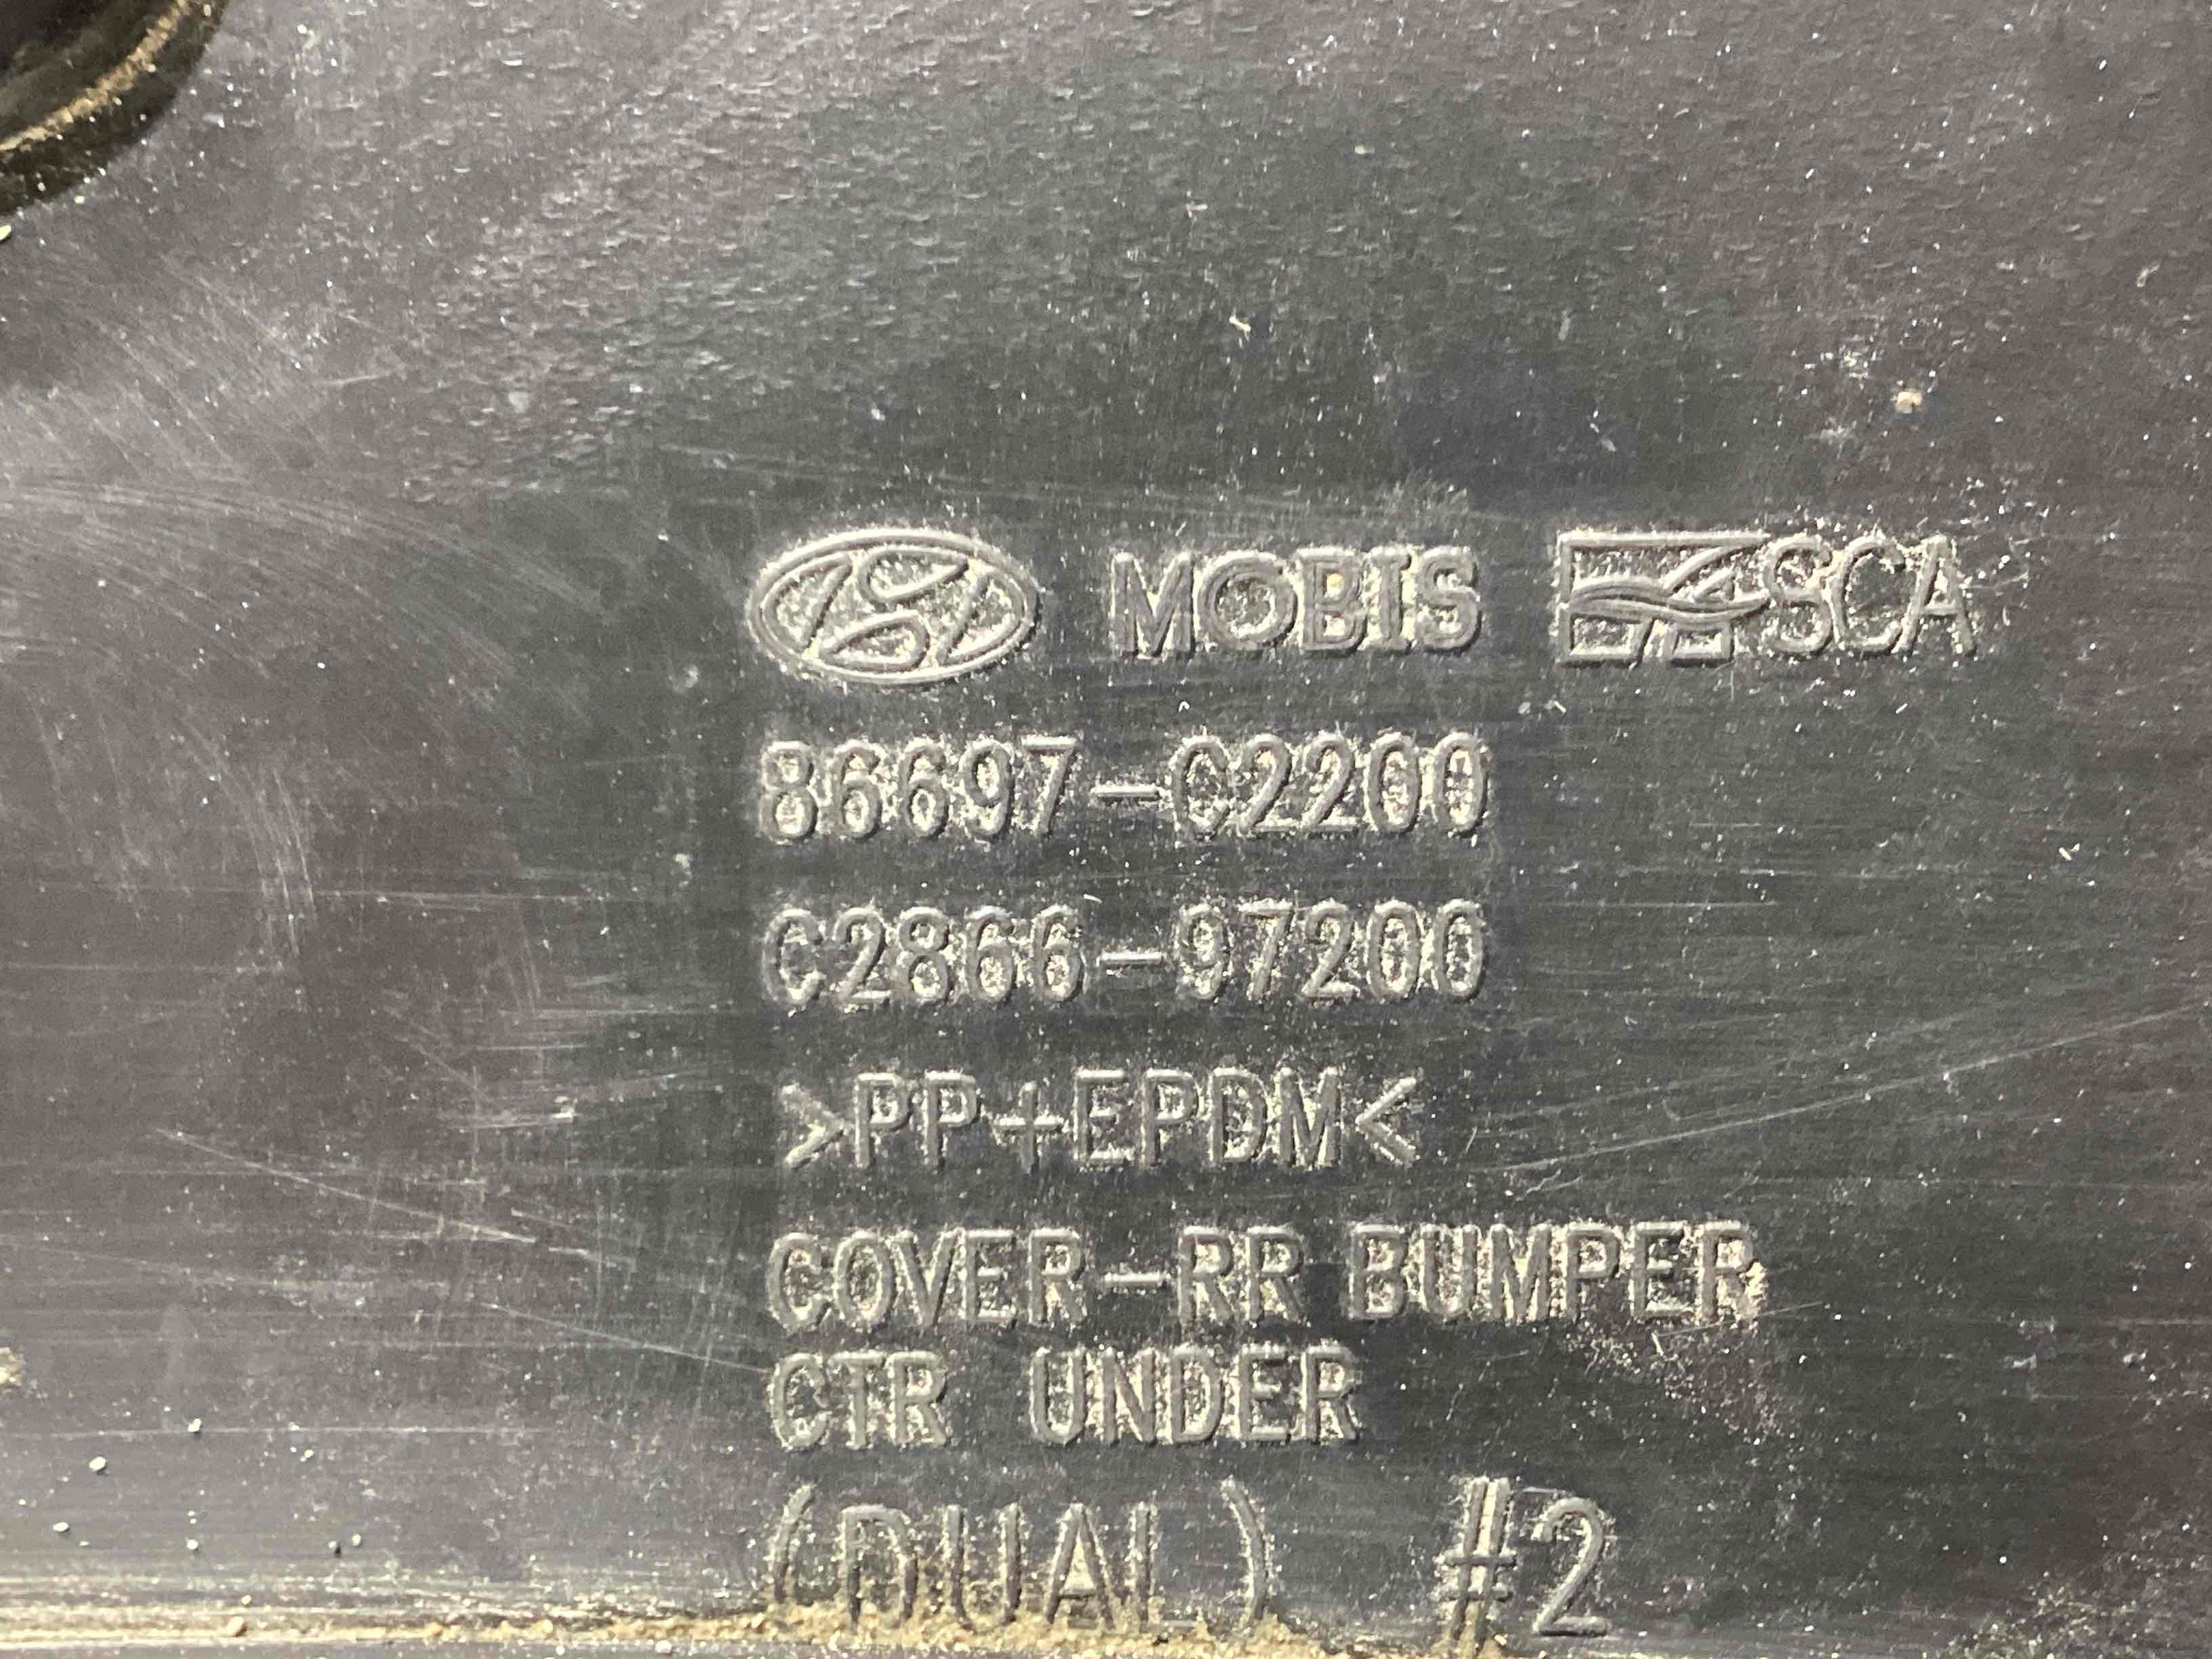 MOBIS SCA
86697-C2200
C2866-97200
>PP+EPDM<
COVER-RR BUMPER
CTR UNDER
(DUAL) #2